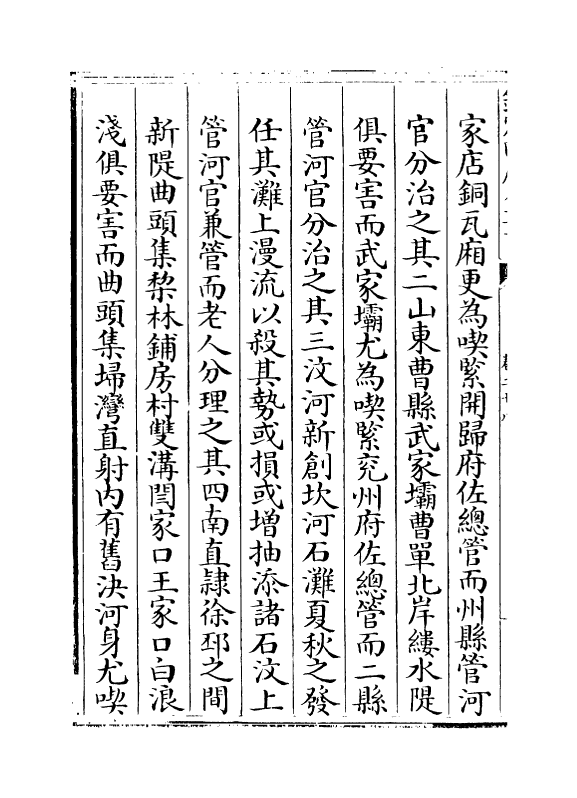 家店銅瓦廂更為喫緊開歸府佐總管而州縣管河
官分治之其二山東曹縣武家壩曹單北岸縷水隄
俱要害而武家壩尤為喫緊兖州府佐總管而二縣
管河官分治之其三汶河新創坎河石灘夏秋之發
任其灘上漫流以殺其勢或損或增抽添諸石汶上
管河官兼管而老人分理之其四南直隷徐邳之間
新隄曲頭集棃林鋪房村雙溝閆家口王家口白浪
淺俱要害而曲頭集埽灣直射内有舊決河身尤喫